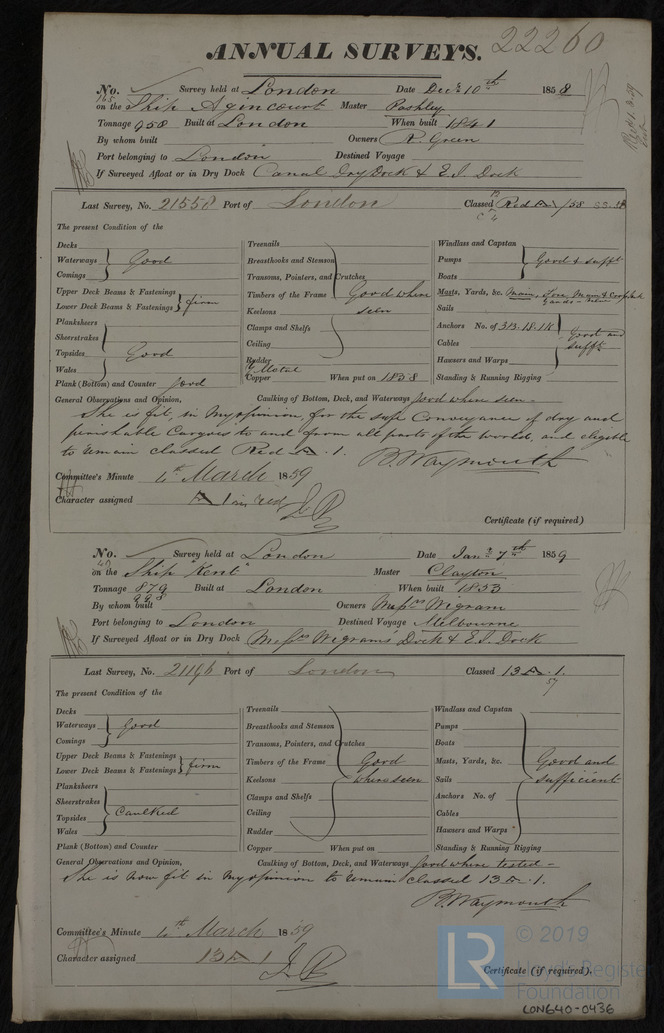 22260
ANNUAL SURVEYS.
No. 165 Survey held at London Date Decr 10th 1858
on the Ship Agincourt Master Pashley
Tonnage 958 Built at London When built 1841
By whom built Owners R. Green
Port belonging to London Destined Voyage
If Surveyed Afloat or in Dry Dock Canal Dry Dock & E.I. Dock
Last Survey, No. 21558 Port of London Classed Red A /58
The present Condition of the
Decks
Waterways } Good
Comings
Upper Deck Beams & Fastenings
Lower Deck Beams & Fastenings } firm
Planksheers
Sheerstrakes
Topsides } Good
Wales
Plank (Bottom) and Counter Good
Treenails
Breasthooks and Stemson
Transoms, Pointers, and Crutches
Timbers of the Frame Good where
Keelsons seen
Clamps and Shelfs
Ceiling
Rudder
Y. Metal
Copper When put on 1858
Windlass and Capstan
Pumps } Good & sufft
Boats
Masts, Yards, &c. Main, Fore Main &
Yards - New
Sails
Anchors No. of 3B.1S.1K Good and
Cables sufft
Hawsers and Warps
Standing & Running Rigging
General Observations and Opinion. Caulking of Bottom, Deck, and Waterways Good where seen -
She is fit, in my opinion, for the safe Conveyance of dry and
perishable Cargoes to and from all parts of the World, and eligible
to remain classed Red A. 1. B. Waymouth
Committee's Minute 4th March 1859
Character assigned A 1 in red
Certificate (if required)
No. 47 Survey held at London Date Jany 7th 1859
on the Ship "Kent" Master Clayton
Tonnage 879 Built at London When built 1853
998
By whom built Owners Messrs Wigram
Port belonging to London Destined Voyage Melbourne
If Surveyed Afloat or in Dry Dock Messrs Wigrams' Dock & E.I. Dock
Last Survey, No. 21196 Port of London Classed 13 A. 1.
57
The present Condition of the
Decks
Waterways } Good
Comings
Upper Deck Beams & Fastenings
Lower Deck Beams & Fastenings } firm
Planksheers
Sheerstrakes
Topsides } Caulked
Wales
Plank (Bottom) and Counter
Treenails
Breasthooks and Stemson
Transoms, Pointers, and Crutches
Timbers of the Frame Good
Keelsons where seen
Clamps and Shelfs
Ceiling
Rudder
Copper When put on
Windlass and Capstan
Pumps
Boats
Masts, Yards, &c. Good and
Sails sufficient
Anchors No. of
Cables
Hawsers and Warps
Standing & Running Rigging
General Observations and Opinion, Caulking of Bottom, Deck, and Waterways Good where tested -
She is now fit in my opinion to remain classed 13 A. 1.
B. Waymouth
Committee's Minute 4th March 1859
Character assigned 13 A 1
Certificate (if required).
© 2019
LR Lloyd's Register
Foundation
LON640-0436